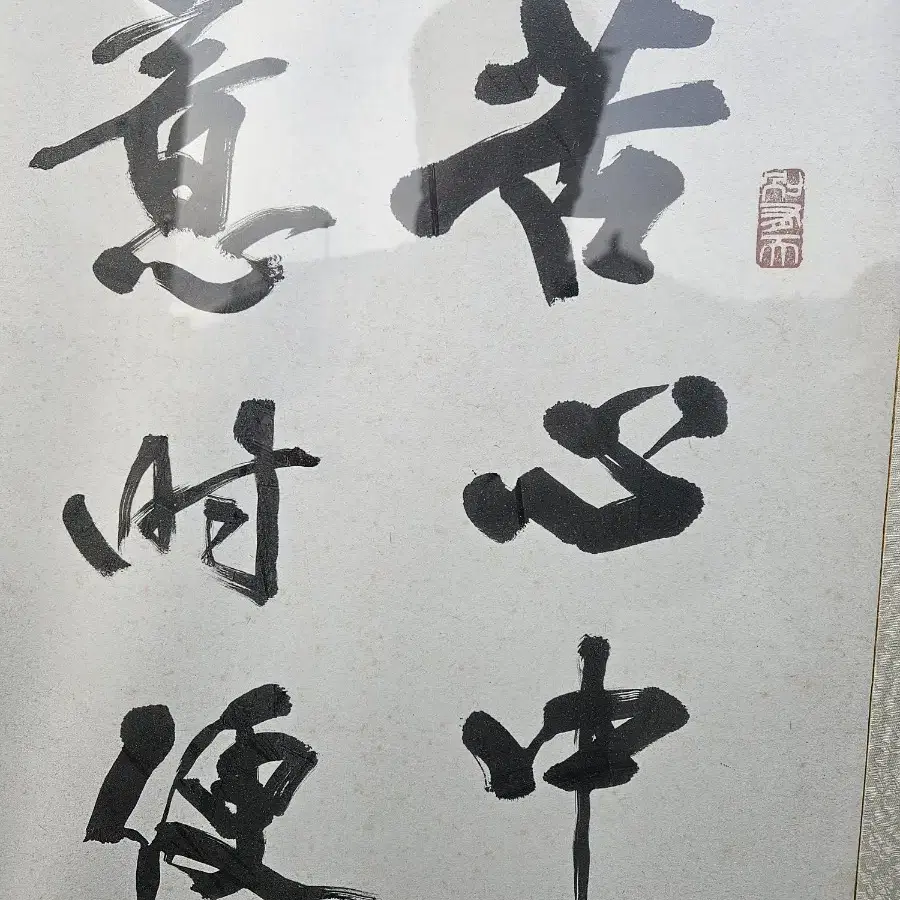 苦心中
意時便